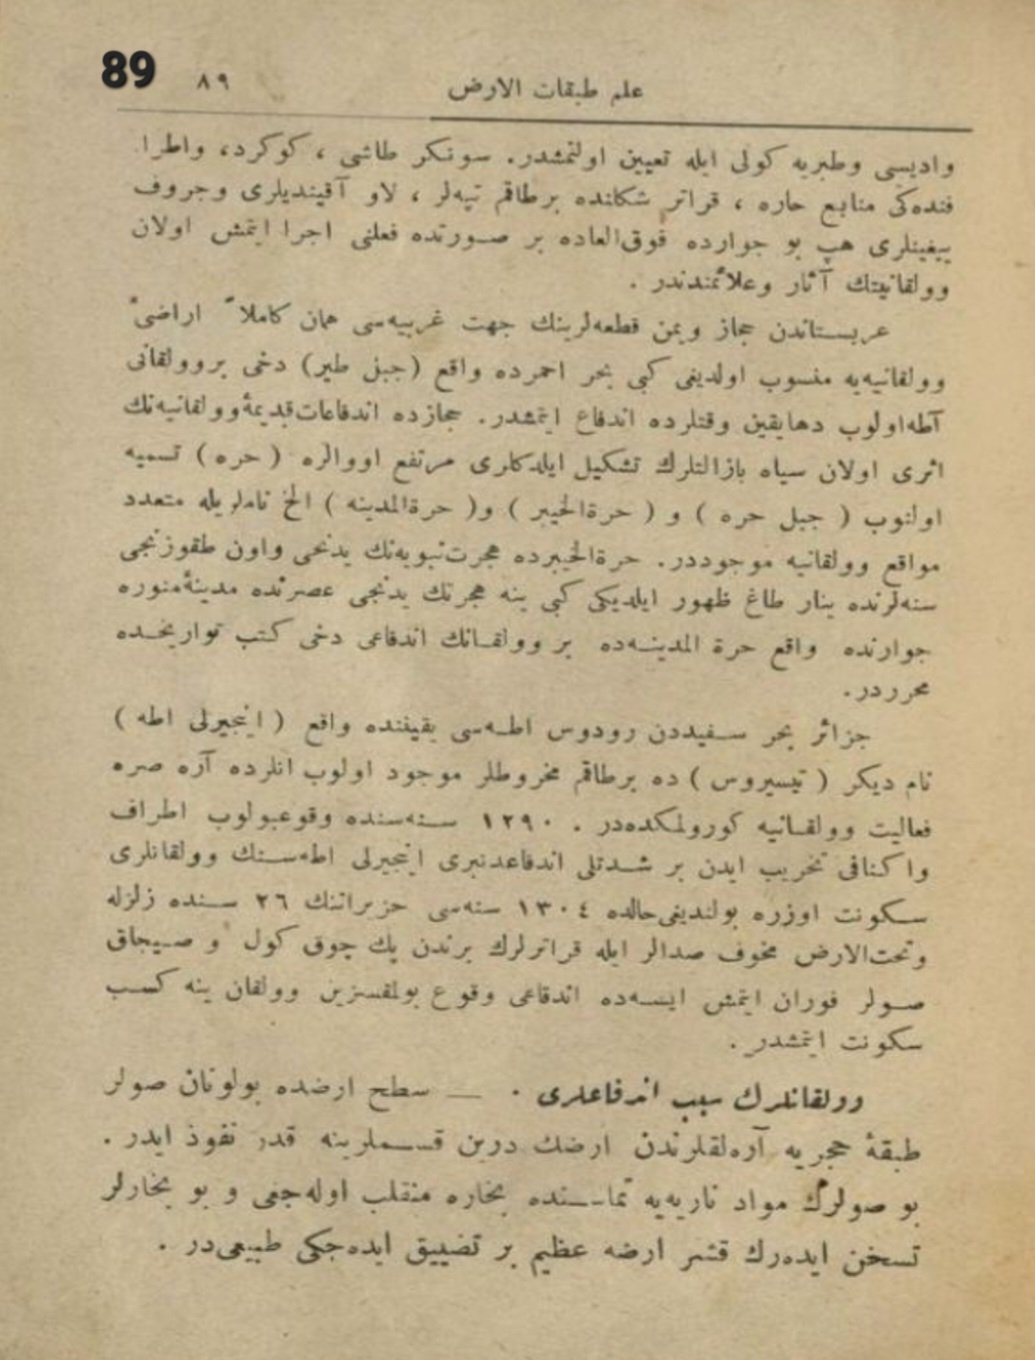 89
٨٩
علم طبقات الارض
واديسى وطبريه كولى ايله تعيين اولنمشدر. سونكر طاشى ، كوكرد، واطرا
فنده‌كى منابع حاره ، قراتر شكلنده برطاقم تپه‌لر ، لاو آقينديلرى وجروف
ييغينلرى هپ بو جوارده فوق‌العاده بر صورتده فعلنى اجرا ايتمش اولان
وولقانيتك آثار وعلائمندندر .
عربستاندن حجاز ويمن قطعه‌لرينك جهت غربيه‌سى همان كاملاً اراضىٔ
وولقانيه‌يه منسوب اولديغى كبى بحر احمرده واقع (جبل طير) دخى بروولقانى
آطه‌اولوب دهايقين وقتلرده اندفاع ايتمشدر. حجازده اندفاعات‌قديمهٔ‌وولقانيه‌نك
اثرى اولان سياه بازالتلرك تشكيل ايلدكلرى مرتفع اووالره (حره) تسميه
اولنوب ( جبل حره ) و ( حرةالخيبر ) و( حرةالمدينه ) الخ ناملريله متعدد
مواقع وولقانيه موجوددر. حرةالخيبرده هجرت‌نبويه‌نك يدنجى واون طقوزنجى
سنه‌لرنده ينار طاغ ظهور ايلديكى كبى ينه هجرتك يدنجى عصرنده مدينهٔ‌منوره
جوارنده واقع حرة المدينه‌ده بر وولقانك اندفاعى دخى كتب تواريخده
محرردر.
جزائر بحر سفيددن رودوس اطه‌سى يقيننده واقع ( انجيرلى اطه )
نام ديكر ( تيسيروس ) ده برطاقم مخروطلر موجود اولوب انلرده آره صره
فعاليت وولقانيه كورولمكده‌در . ١٢٩٠ سنه‌سنده وقوعبولوب اطراف
واكنافى تخريب ايدن بر شدتلى اندفاعدنبرى انجيرلى اطه‌سنك وولقانلرى
سكونت اوزره بولنديغى‌حالده ١٣٠٤ سنه‌سى حزيراننك ٢٦ سنده زلزله
وتحت‌الارض مخوف صدالر ايله قراترلرك برندن پك چوق كول و صيجاق
صولر فوران ايتمش ايسه‌ده اندفاعى وقوع بولمقسزين وولقان ينه كسب
سكونت ايتمشدر .
وولقانلرك سبب اندفاعلرى . — سطح ارضده بولونان صولر
طبقهٔ حجريه آره‌لقلرندن ارضك درين قسملرينه قدر نفوذ ايدر .
بو صولرك مواد ناريه‌يه تماسنده بخاره منقلب اوله‌جغى و بو بخارلر
تسخن ايده‌رك قشر ارضه عظيم بر تضييق ايده‌جكى طبيعى‌در .